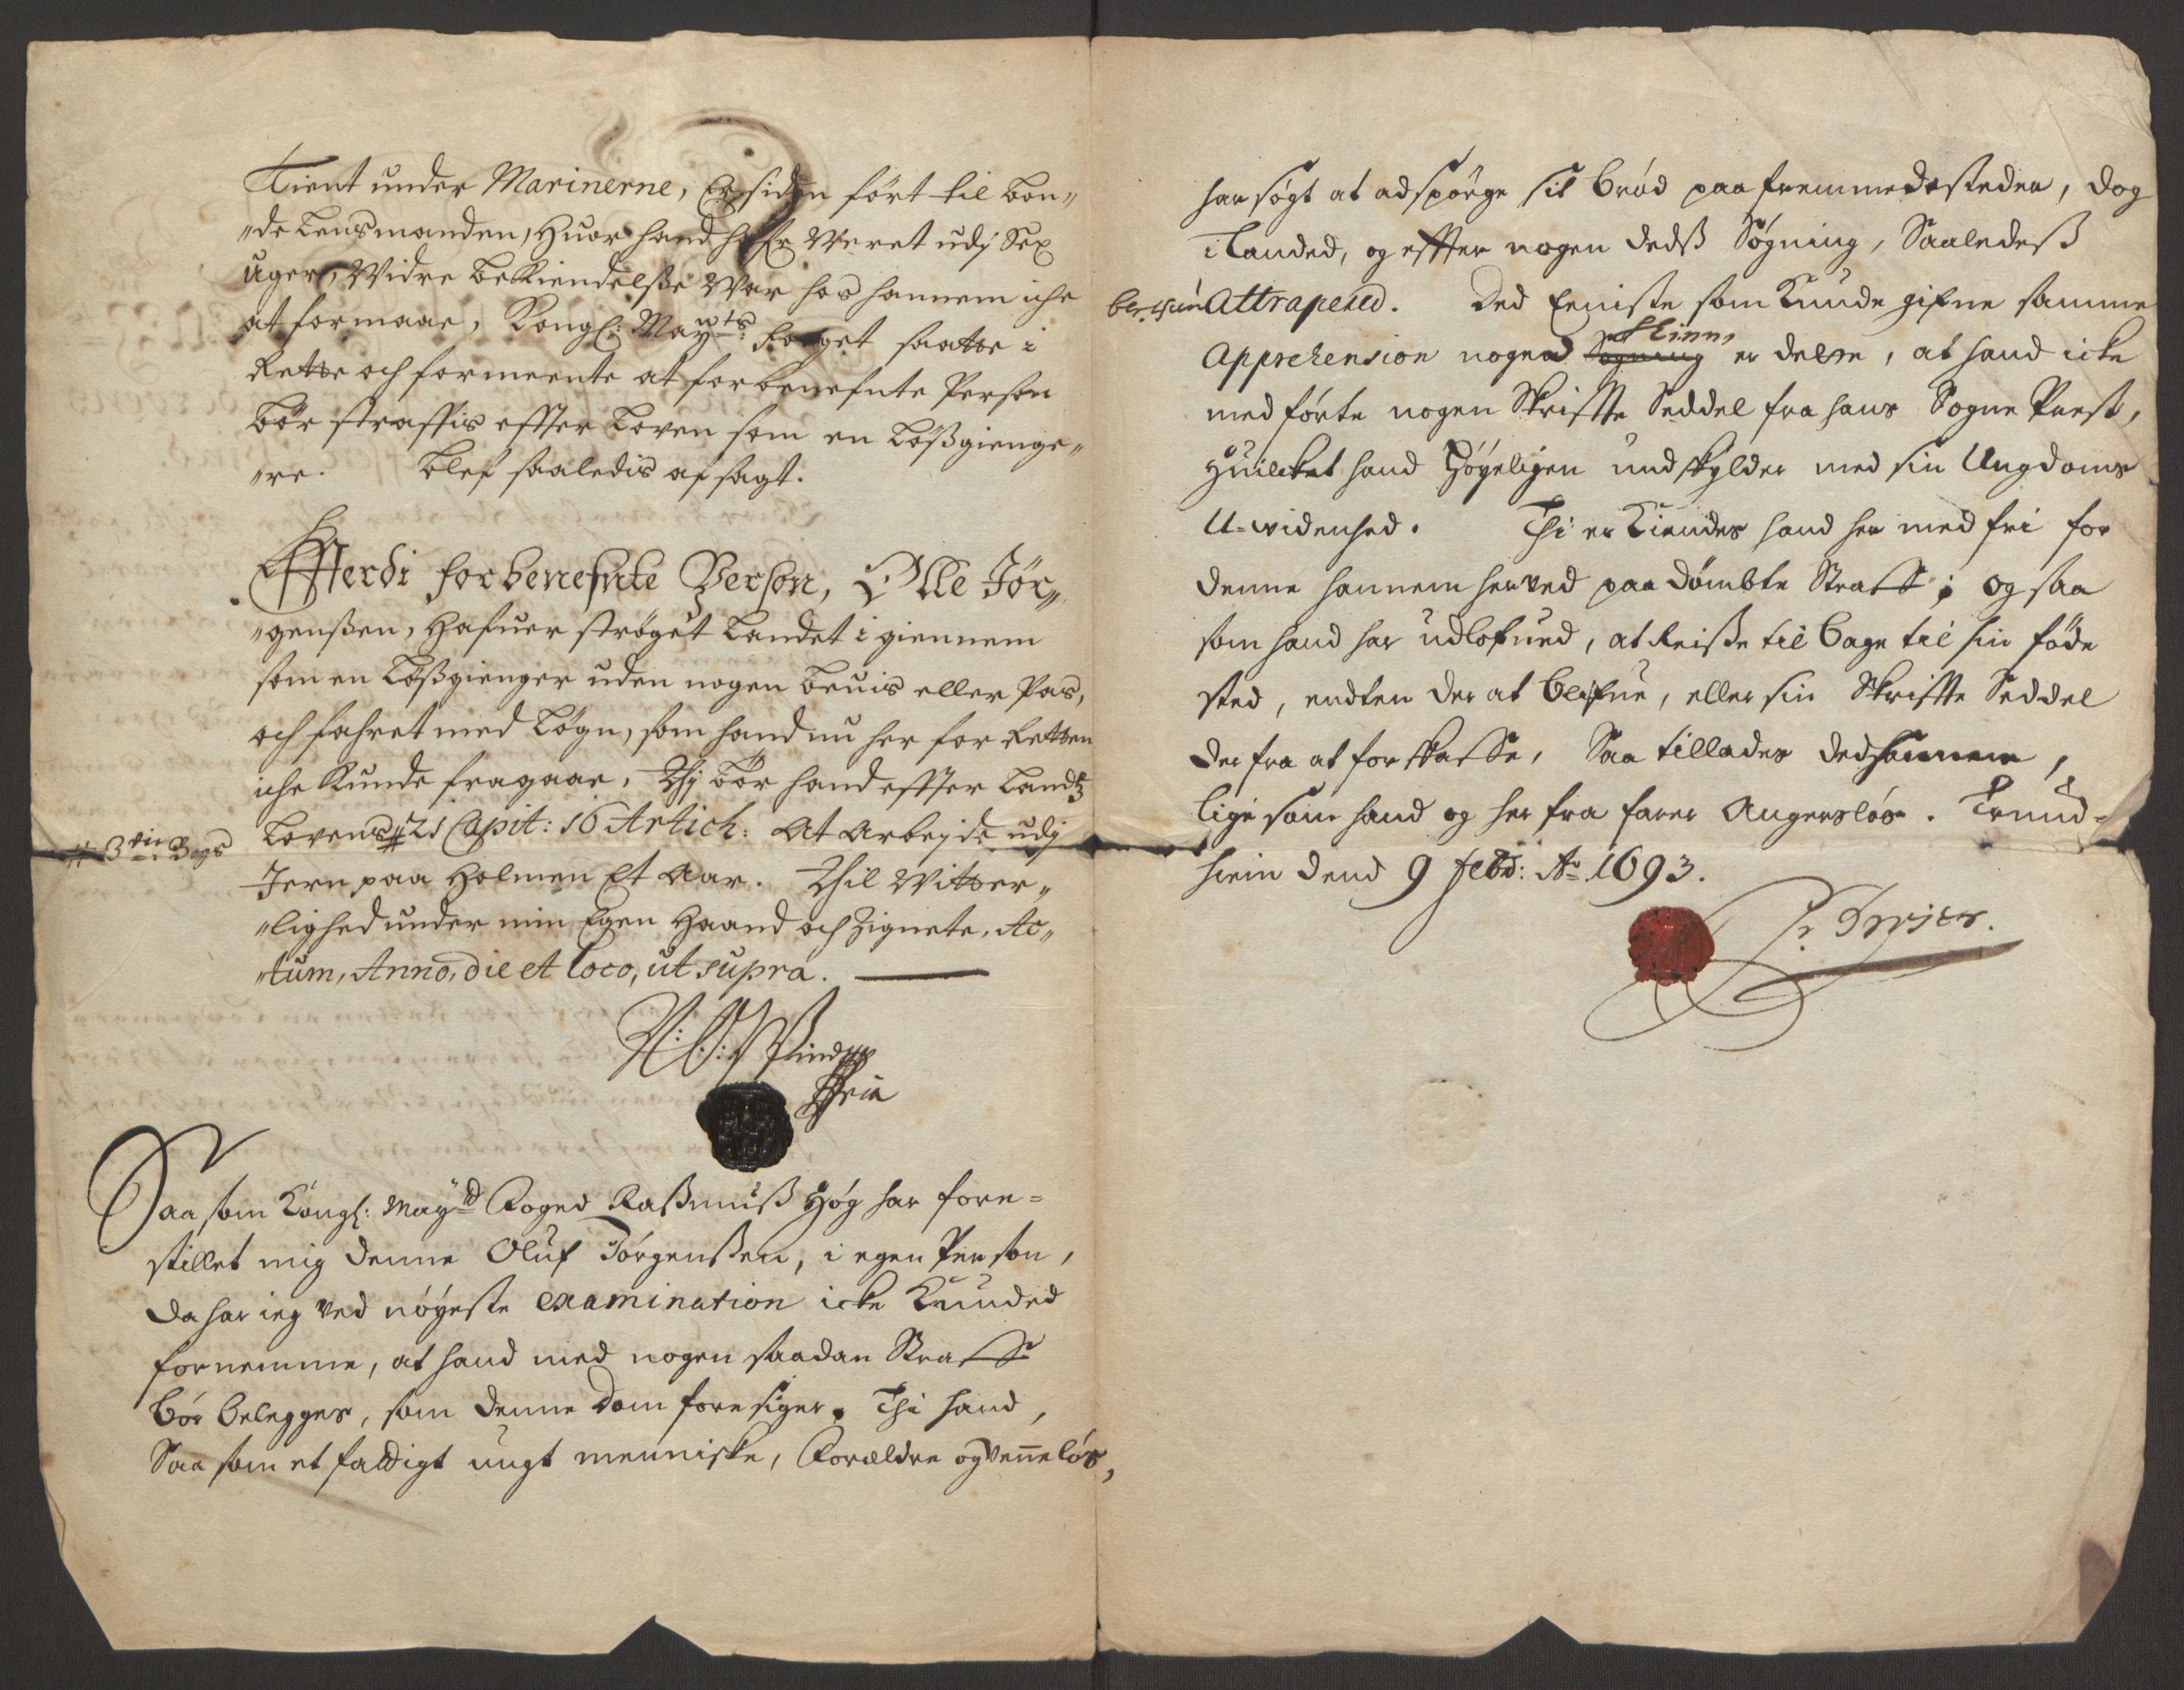 Tient under Marinerne, Er siden ført til bon„
„de Lensmanden, Huor hand hafr Weret udj Sex
uger, Widre bekiendelsße War hos hannem iche
at formaae, Kongl: Mayts: Foeget saatte i
Rette och formeente at forbenefnte Person
bør straffis effter Loven som en Løßgienge„
„re. Blef saaledis af sagt.
Effterdi forbenefnte Person, Olle Jør„
„genßen, Hafuer strøget Landet i giennem
som en Løßgienger uden nogen beuis eller Pas,
och fahret med Løgn, som hand nu her for Retten
iche Kunde fragaae, Thj bør hand effter Landtz
# 3die Bogs
Lovens # 21 Capit: 16 Artich: At Arbejde udj
Jern paa Holmen Et Aar. Thil Witter„
„lighed under min Egen Haand och Zignete, Ac„
„tum, Anno, die et loco, ut supra.
Saa som Kongl: Mayts Foged Raßmuß Høg har fore=
stillet mig denne Oluf Jørgenßen, i egen Person,
da har ieg ved nøyeste examination icke Kunded
fornemme, at hand med nogen saadan Straffe
bør belegges, som denne dom foresiger. Thi hand,
Saa som et fattigt ungt menniske, Forældre og venneløs,
har søgt at adspørge sit brød paa fremmede steder, dog
i Landed, og effter nogen deds Søgning, Saaledeß
Attraperet. Ded Eeniste som Kunde gifue samme
Apprehension nogen Søgning Skinn, er dette, at hand icke
med førte nogen Skriffte Seddel fra hans Sogne Prest,
Huilcket hand Høyeligen undskylder med sin Ungdoms
U=videnhed. Thi er Kiendes hand her med fri for
denne hannem herved paa dømbte Straff; og saa
som hand har udlofued, at Reiße til bage til sin føde
sted, endten der at blifue, eller sin Skriffte Seddel
der fra at forskaffe, Saa tillades ded hannem,
lige som hand og her fra farer Angersløs. Trund=
hiem dend 9 Febr: Ao 1693.